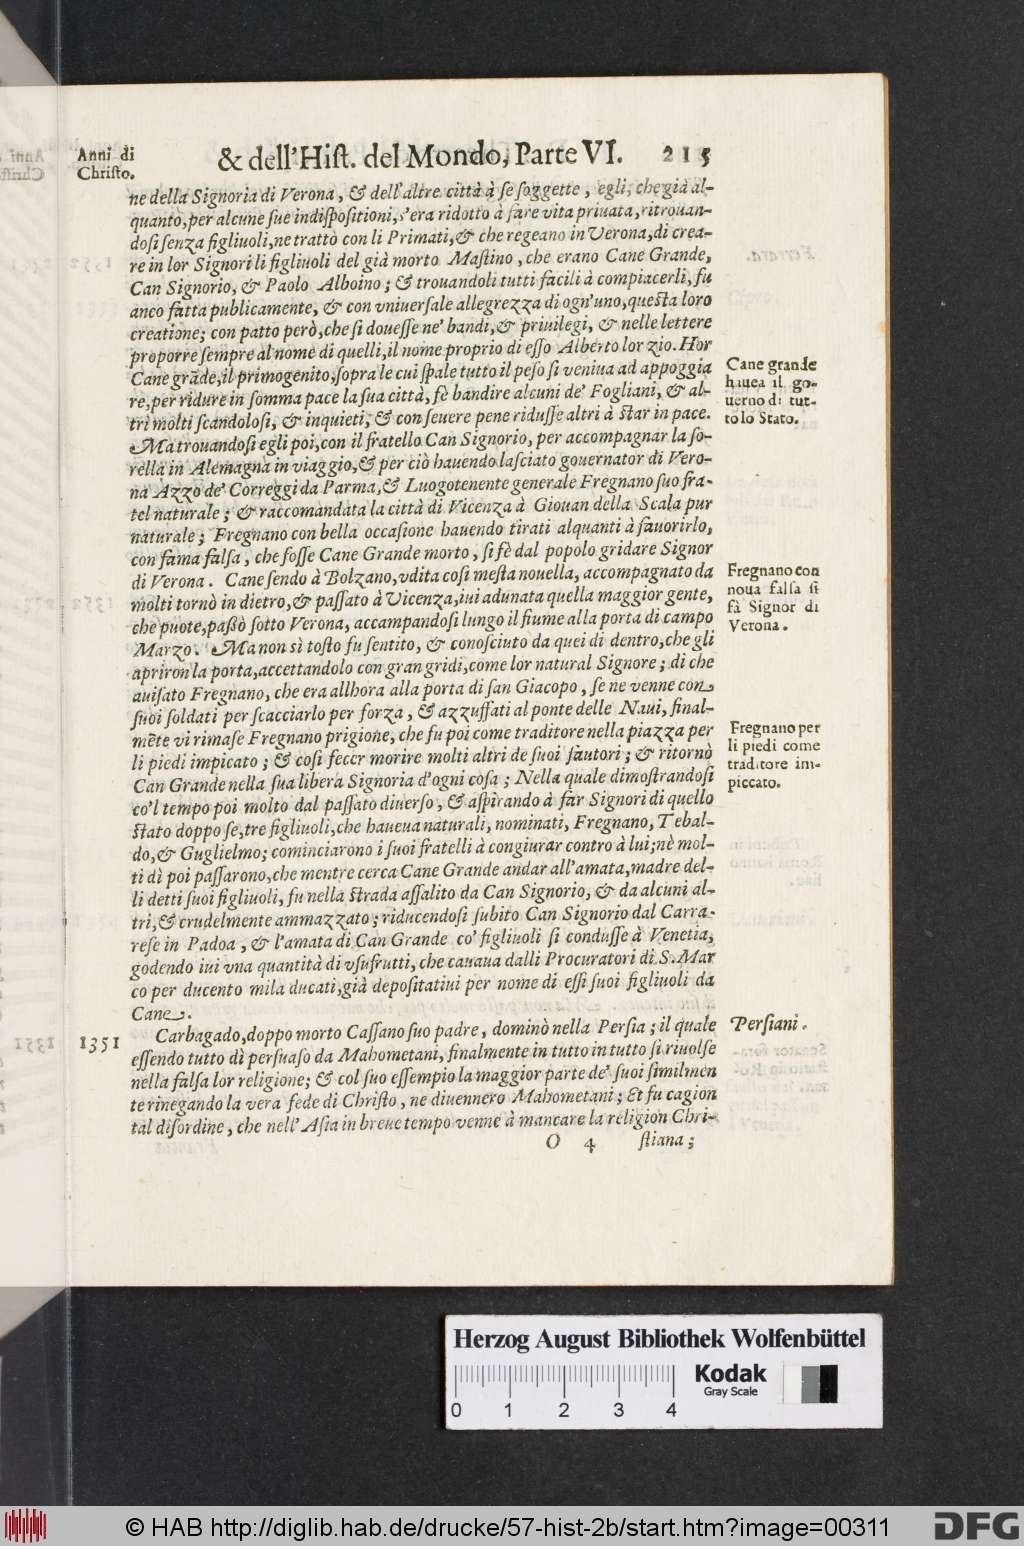 Anni di
Christo.
& dell'Hist. del Mondo, Parte VI. 215
ne della Signoria di Verona, & dell'altre città à se soggette, egli, che già al-
quanto, per alcune sue indispositioni, s'era ridotto à fare vita priuata, ritrouan-
dosi senza figliuoli, ne trattò con li Primati, & che regeano in Verona, di crea-
re in lor Signori li figliuoli del già morto Mastino, che erano Cane Grande,
Can Signorio, & Paolo Alboino; & trouandoli tutti facili à compiacerli, fu
anco fatta publicamente, & con vniuersale allegrezza di ogn'uno, questa loro
creatione; con patto però, che si douesse ne' bandi, & priuilegi, & nelle lettere
proporre sempre al nome di quelli, il nome proprio di esso Alberto lor zio. Hor
Cane grãde, il primogenito, sopra le cui spale tutto il peso si veniua ad appoggia
re, per ridure in somma pace la sua città, fè bandire alcuni de' Fogliani, & al-
tri molti scandolosi, & inquieti, & con seuere pene ridusse altri à star in pace.
Ma trouandosi egli poi, con il fratello Can Signorio, per accompagnar la so-
rella in Alemagna in viaggio, & per ciò hauendo lasciato gouernator di Vero-
na Azzo de' Correggi da Parma, & Luogotenente generale Fregnano suo fra-
tel naturale; & raccomandata la città di Vicenza à Giouan della Scala pur
naturale; Fregnano con bella occasione hauendo tirati alquanti à fauorirlo,
con fama falsa, che fosse Cane Grande morto, si fè dal popolo gridare Signor
di Verona. Cane sendo à Bolzano, vdita cosi mesta nouella, accompagnato da
molti tornò in dietro, & passato à Vicenza, iui adunata quella maggior gente,
che puote, paßò sotto Verona, accampandosi lungo il fiume alla porta di campo
Marzo. Ma non sì tosto fu sentito, & conosciuto da quei di dentro, che gli
apriron la porta, accettandolo con gran gridi, come lor natural Signore; di che
auisato Fregnano, che era allhora alla porta di san Giacopo, se ne venne con
suoi soldati per scacciarlo per forza, & azzuffati al ponte delle Naui, final-
mẽte vi rimase Fregnano prigione, che fu poi come traditore nella piazza per
li piedi impicato; & cosi fecer morire molti altri de suoi fautori; & ritornò
Can Grande nella sua libera Signoria d'ogni cosa; Nella quale dimostrandosi
co'l tempo poi molto dal passato diuerso, & aspirando à far Signori di quello
stato doppo se, tre figliuoli, che haueua naturali, nominati, Fregnano, Tebal-
do, & Guglielmo; cominciarono i suoi fratelli à congiurar contro à lui; nè mol-
ti dì poi passarono, che mentre cerca Cane Grande andar all'amata, madre del-
li detti suoi figliuoli, fu nella strada assalito da Can Signorio, & da alcuni al-
tri, & crudelmente ammazzato; riducendosi subito Can Signorio dal Carra-
rese in Padoa, & l'amata di Can Grande co' figliuoli si condusse à Venetia,
godendo iui vna quantità di vsufrutti, che cauaua dalli Procuratori di S. Mar
co per ducento mila ducati, già depositatiui per nome di essi suoi figliuoli da
Cane.
Cane grande
hauea il go-
uerno di tut-
to lo Stato.
Fregnano con
noua falsa si
fà Signor di
Verona.
Fregnano per
li piedi come
traditore im-
piccato.
1351
Carbagado, doppo morto Cassano suo padre, dominò nella Persia; il quale
essendo tutto dì persuaso da Mahometani, finalmente in tutto in tutto si riuolse
nella falsa lor religione; & col suo essempio la maggior parte de' suoi similmen
te rinegando la vera fede di Christo, ne diuennero Mahometani; Et fu cagion
tal disordine, che nell'Asia in breue tempo venne à mancare la religion Chri-
Persiani.
O 4 stiana;
Herzog August Bibliothek Wolfenbüttel
0 1 2 3 4
Kodak
Gray Scale
© HAB http://diglib.hab.de/drucke/57-hist-2b/start.htm?image=00311
DFG